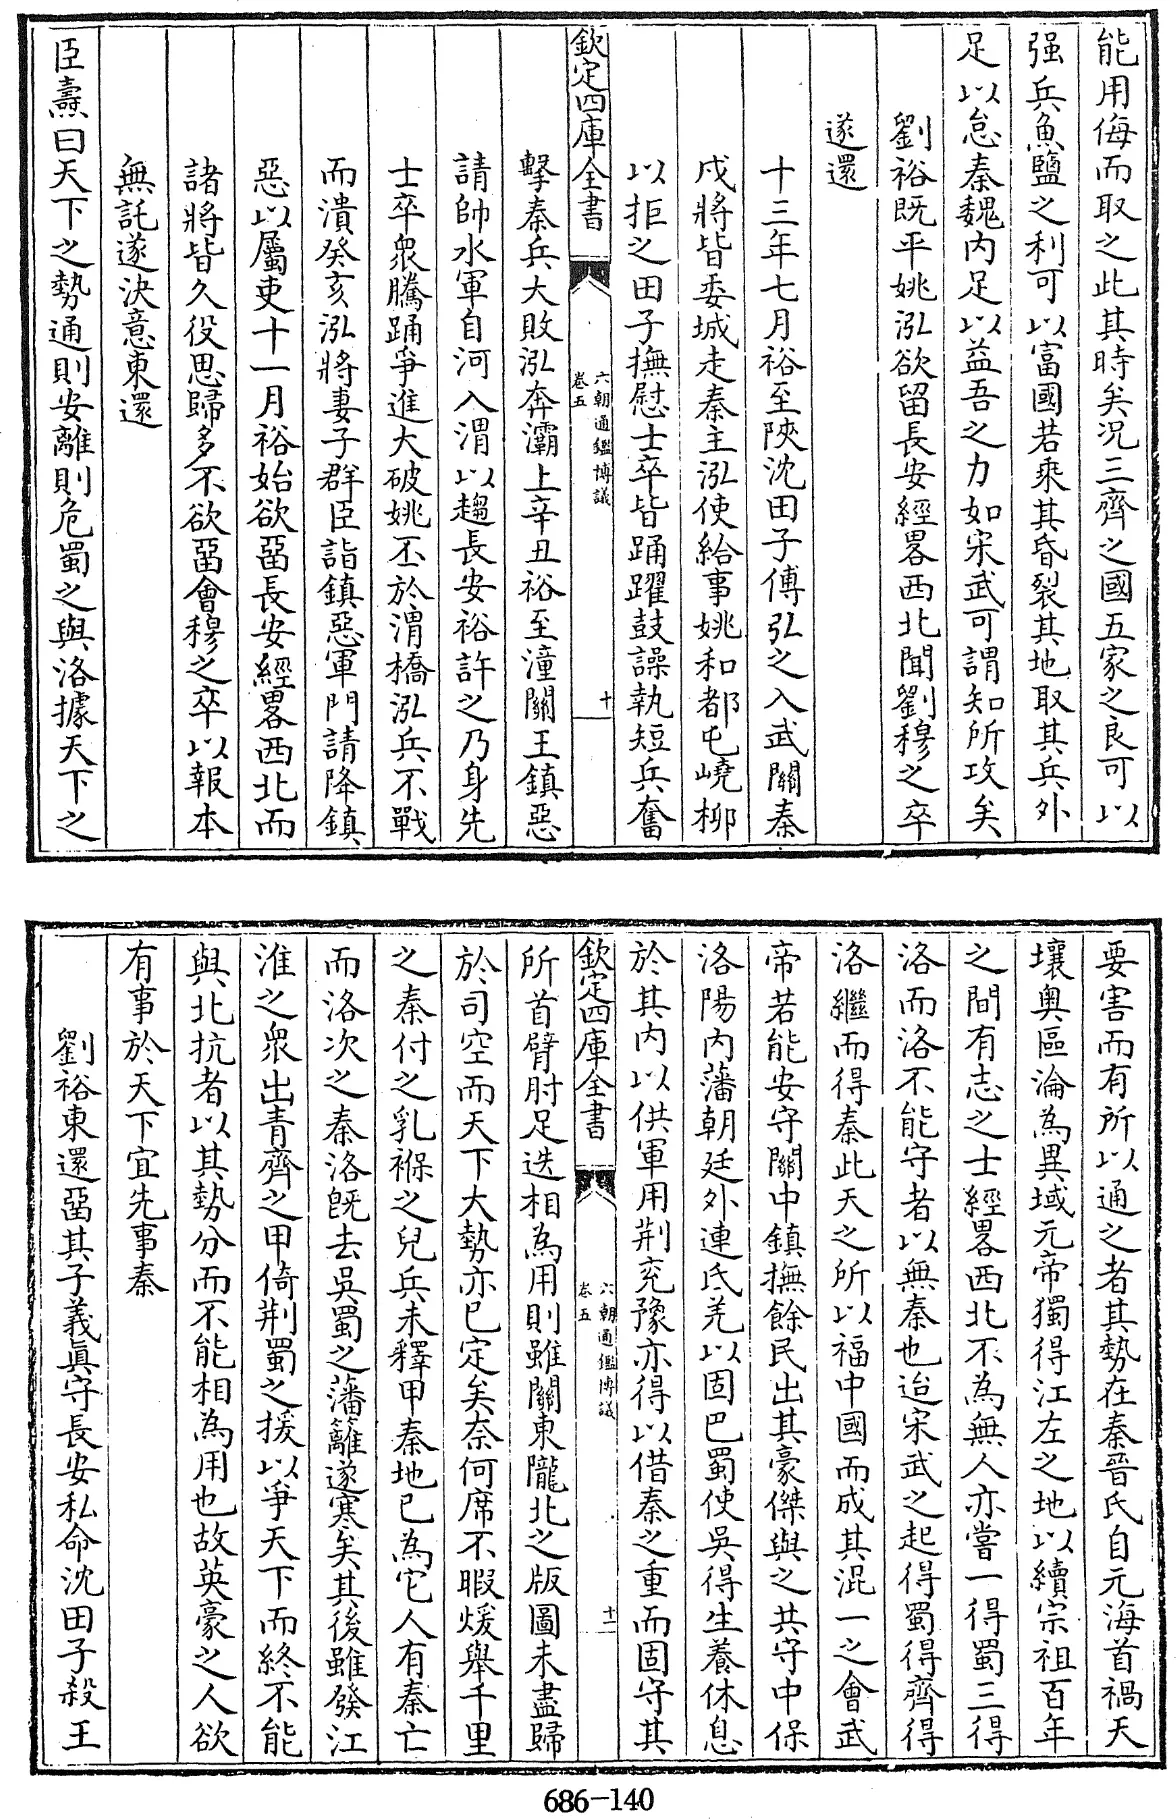 能用侮而取之此其時矣况三齊之國五家之良可以
强兵魚鹽之利可以富國若乘其昏裂其地取其兵外
足以怠秦魏内足以益吾之力如宋武可謂知所攻矣
劉裕既平姚泓欲留長安經畧西北聞劉穆之卒
遂還
十三年七月裕至陜沈田子傅弘之入武關秦
戍將皆委城走秦主泓使給事姚和都屯嶢柳
以拒之田子撫慰士卒皆踊躍鼓譟執短兵奮
欽定四庫全書
六朝通鑑博議
卷五
十
擊秦兵大敗泓奔灞上辛丑裕至潼關王鎮惡
請帥水軍自河入渭以趨長安裕許之乃身先
士卒衆騰踊爭進大破姚丕於渭橋泓兵不戰
而潰癸亥泓將妻子群臣詣鎮惡軍門請降鎮
惡以屬吏十一月裕始欲畱長安經畧西北而
諸將皆久役思歸多不欲畱會穆之卒以報本
無託遂決意東還
臣燾曰天下之勢通則安離則危蜀之與洛據天下之
要害而有所以通之者其勢在秦晉氏自元海首禍天
壤奥區淪為異域元帝獨得江左之地以續宗祖百年
之間有志之士經畧西北不為無人亦嘗一得蜀三得
洛而洛不能守者以無秦也迨宋武之起得蜀得齊得
洛繼而得秦此天之所以福中國而成其混一之會武
帝若能安守關中鎮撫餘民出其豪傑與之共守中保
洛陽内藩朝廷外連氐羌以固巴蜀使吳得生養休息
於其内以供軍用荆兖豫亦得以借秦之重而固守其
欽定四庫全書
六朝通鑑博議
卷五
十一
所首臂肘足迭相為用則雖關東隴北之版圖未盡歸
於司空而天下大勢亦已定矣奈何席不暇煖舉千里
之秦付之乳褓之兒兵未釋甲秦地已為它人有秦亡
而洛次之秦洛既去吳蜀之藩籬遂寒矣其後雖發江
淮之衆出青齊之甲倚荆蜀之援以爭天下而終不能
與北抗者以其勢分而不能相為用也故英豪之人欲
有事於天下宜先事秦
劉裕東還畱其子義眞守長安私命沈田子殺王
686-140